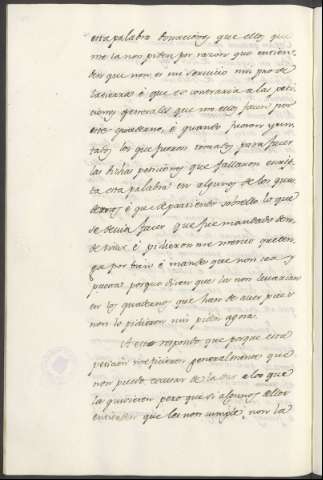 esta palabra donaciones que ellos que
me la non piden por razon que entien
den que non es mi servicio nin pro de
la tierra é que es contraria a las peti
ciones generales que me ellos facen por
este quaderno, é quando fueron ayun
tados los que fueron tomados para facer
las dichas peticiones que fallaron escrip
ta esta palabra en algunos de los quader
nos é que departiendo sobrello lo que
se devia facer que fue mandado
é pidieron me merced que ten
ga por bien é mande que non sea y
puesta porque dicen que la non levarian
en los quadernos que han de aver pues
non lo pidieron nin piden agora.
A esto respondo que porque esta
peticion me ficieron generalmente que
non puedo escusar de la dar a los que
la quisieren pero que si algunos dellos
entienden que les non cumple, non la